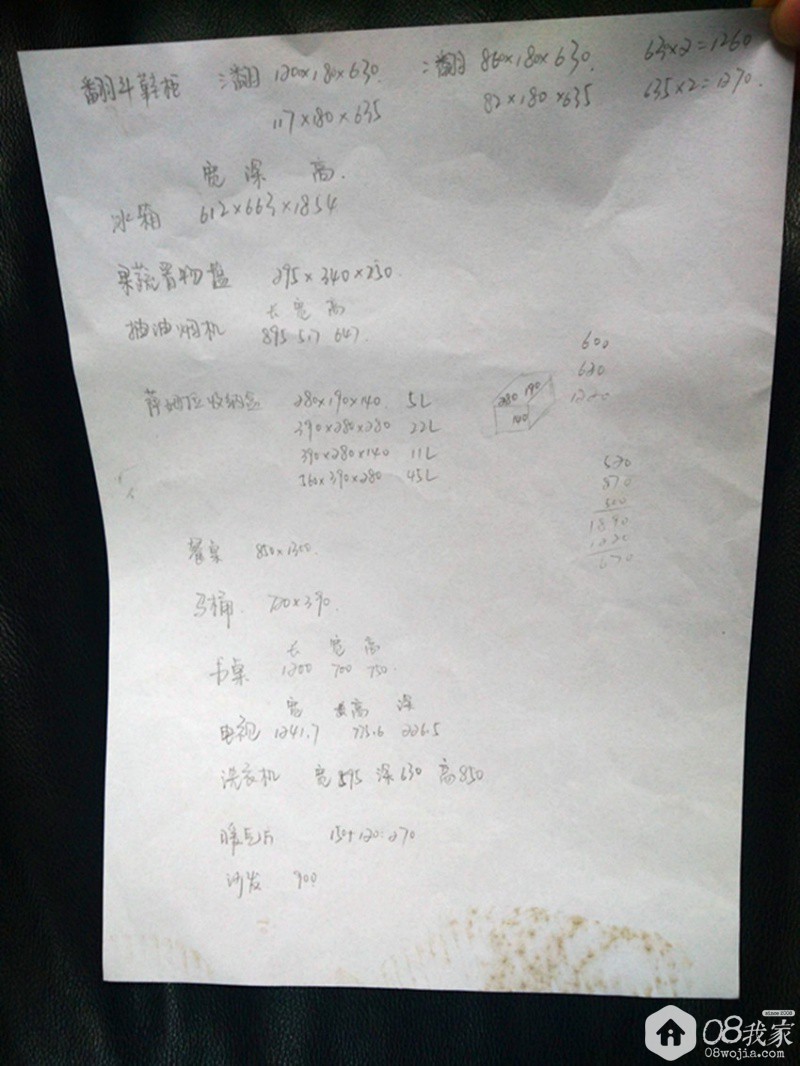 翻斗鞋柜 二翻 120×180×630. 二翻 860×180×630. 63×2=1260
117×180×635 82×180×635 635×2=1270.
宽 深 高.
冰箱 612×663×1854
果蔬置物篮 295×340×250.
长 宽 高
抽油烟机 895 517 647.
收纳盒 280×190×140 5L
390×280×280 22L
390×280×140 11L
560×390×280 45L
280 190
140
600
620
1220
520
870
500
1890
1220
670
餐桌 850×1300.
马桶. 720×390.
长 宽 高
书桌 1200 700 750.
宽 高 深
电视 1241.7 735.6 226.5
洗衣机 宽595 深630 高850
暖气片 150+120=270
沙发 900
since 2008
08我家
08wojia.com